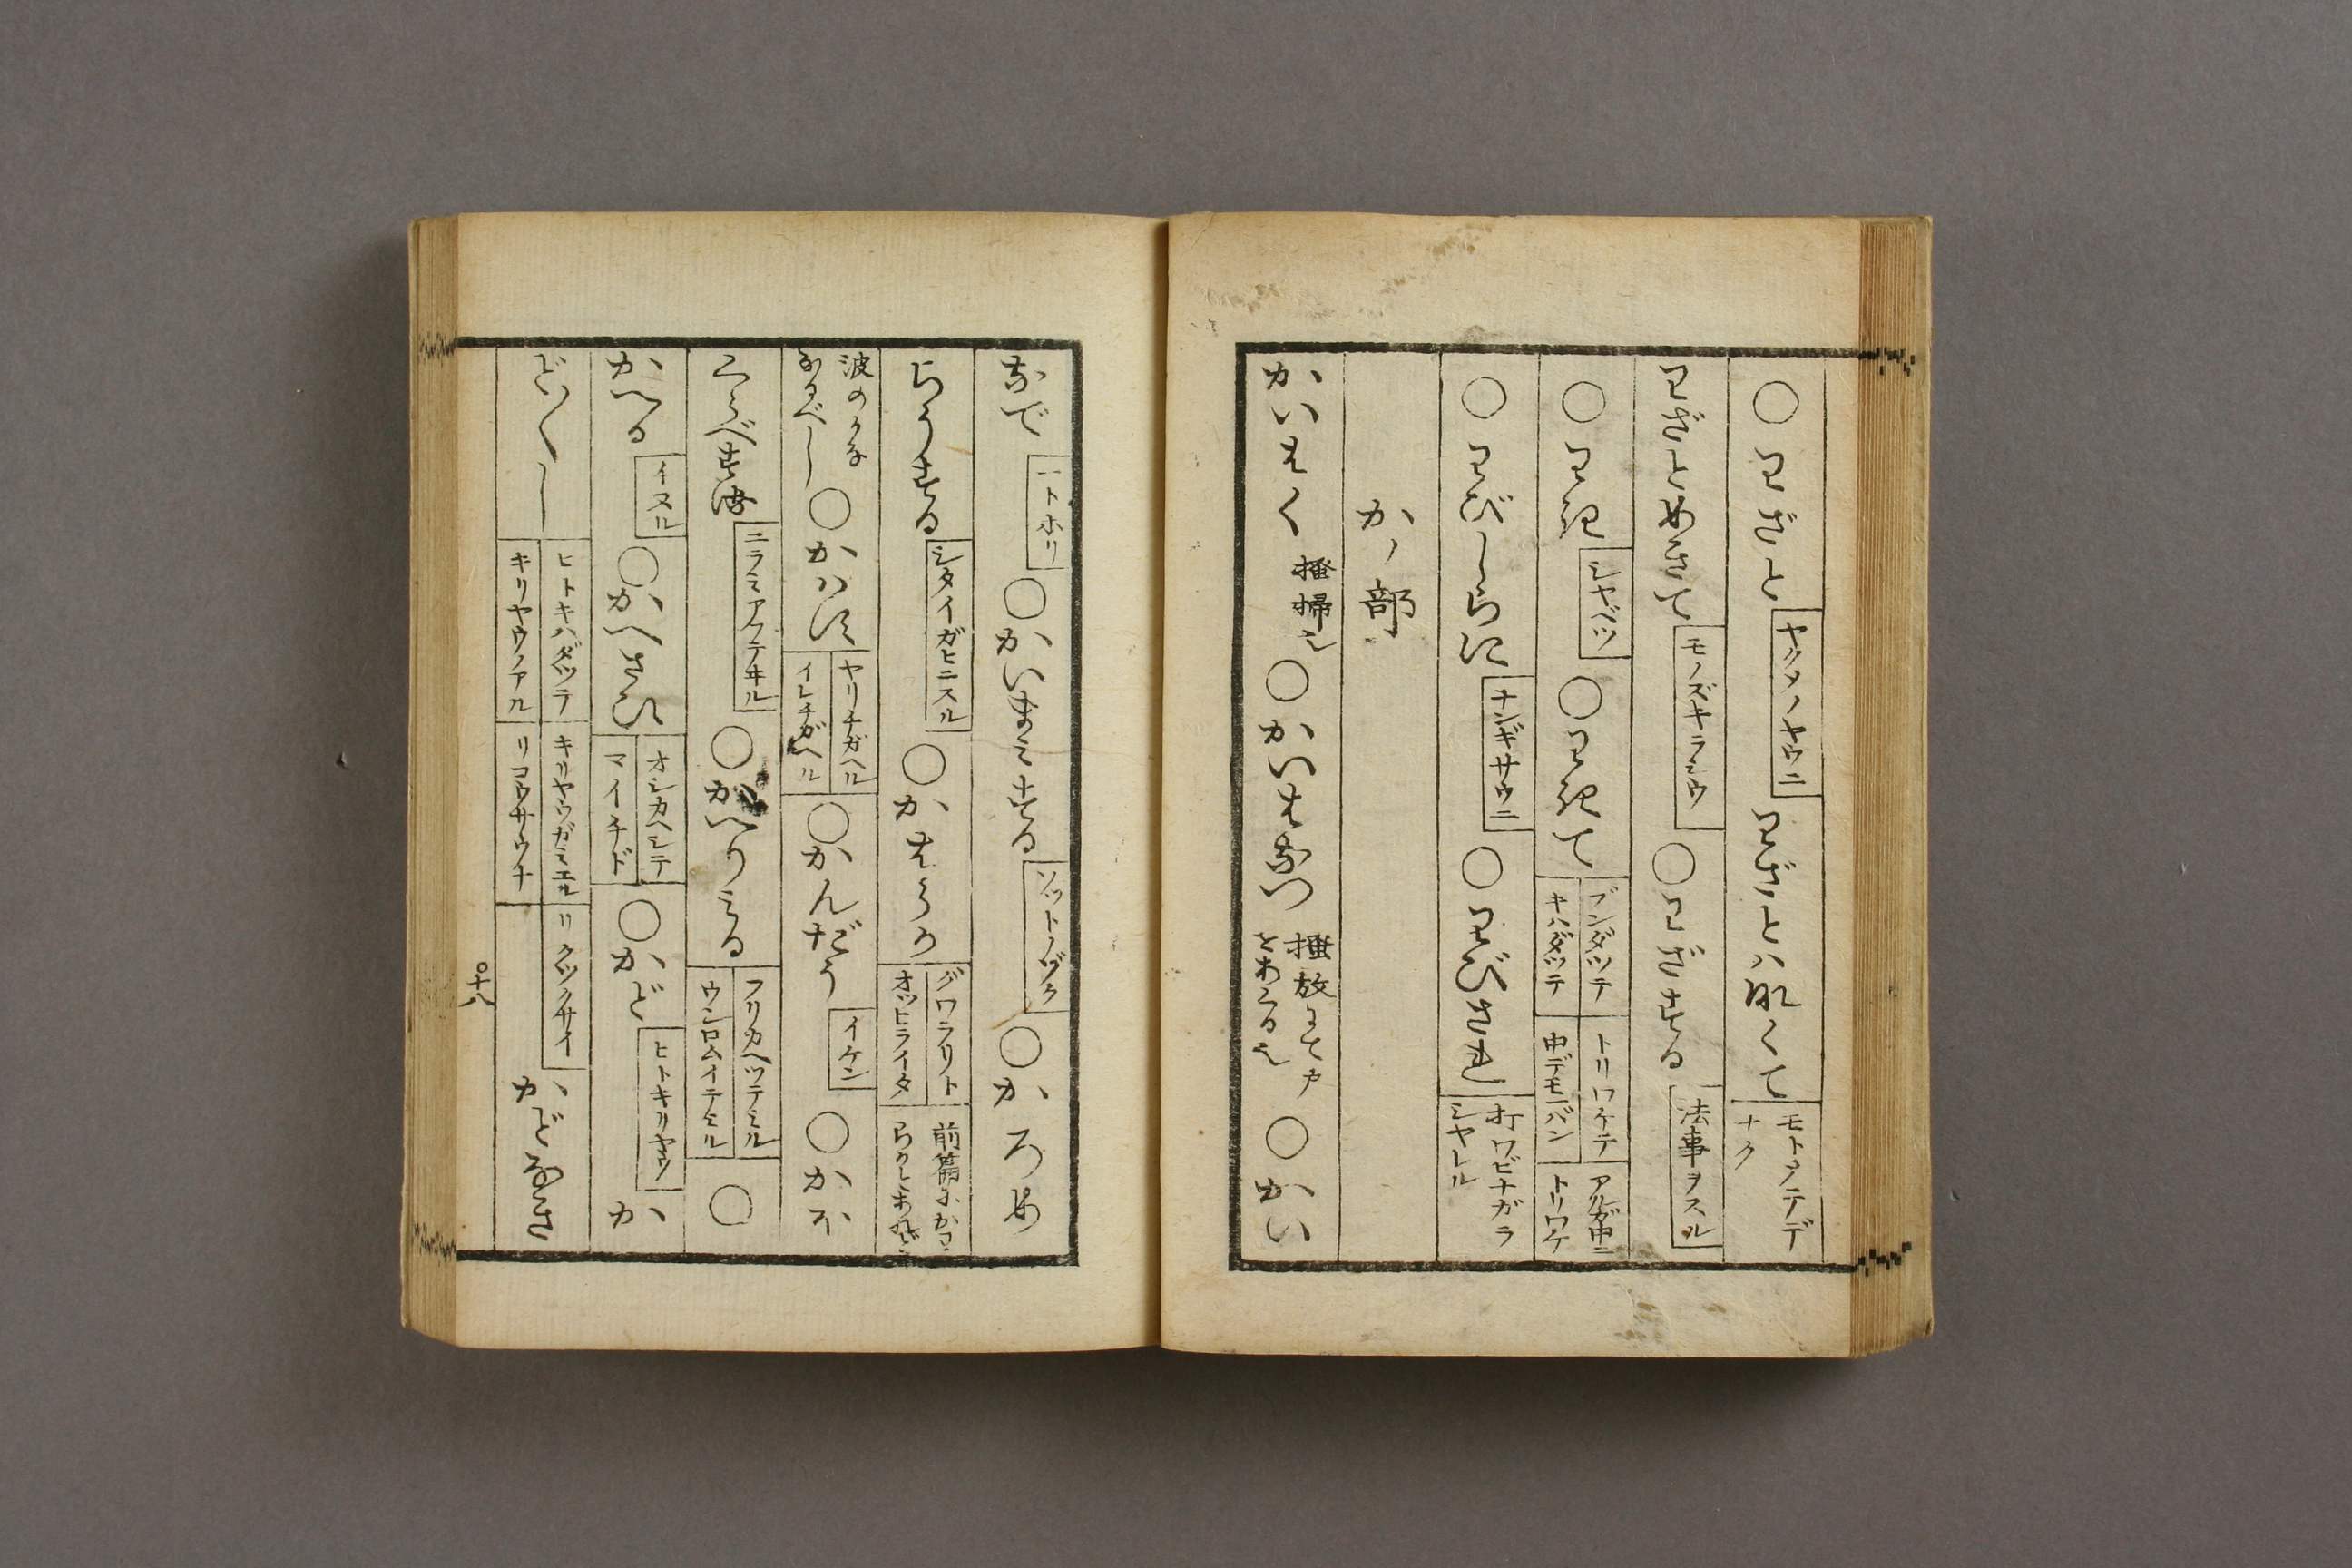 ○わざと ヤクタノヤウニ わざとハなくて モトタテデナク
わざとめきて モノズキラシウ ○わざする 法事ヲスル
○わき シヤベツ ○わきて ブンダツテ キハダツテ トリワケテ 中デモ一バン アルガ中ニ トリワケ
○わびしらに ナンギサウニ ○わびされ 打ワビナガラ シヤレル
かノ部
かいはく 掻掃也 ○かいはなつ 掻放にて戸をあくる也 ○かい
なで 一トホリ ○かいまみする ソツトノゾク ○かろめ
らうする シタイガヒニスル ○かはらか グワラリト オツヒライタ 前篇にかわらかとあれど
波のかななるべし ○かハす ヤリチガヘル イレチガヘル ○かんだう イケン ○かほ
くらべする ニラミアフテヰル ○かへりみる フリカヘツテミル ウシロムイテミル ○
かへる イヌル ○かへさひ オシカヘシテ マイチド ○かど ヒトキリヤウ か
どかどし ヒトキハダツテ キリヤウノアル キリヤウガミエル リコウサウナ リクツクサイ かどなき
○十八